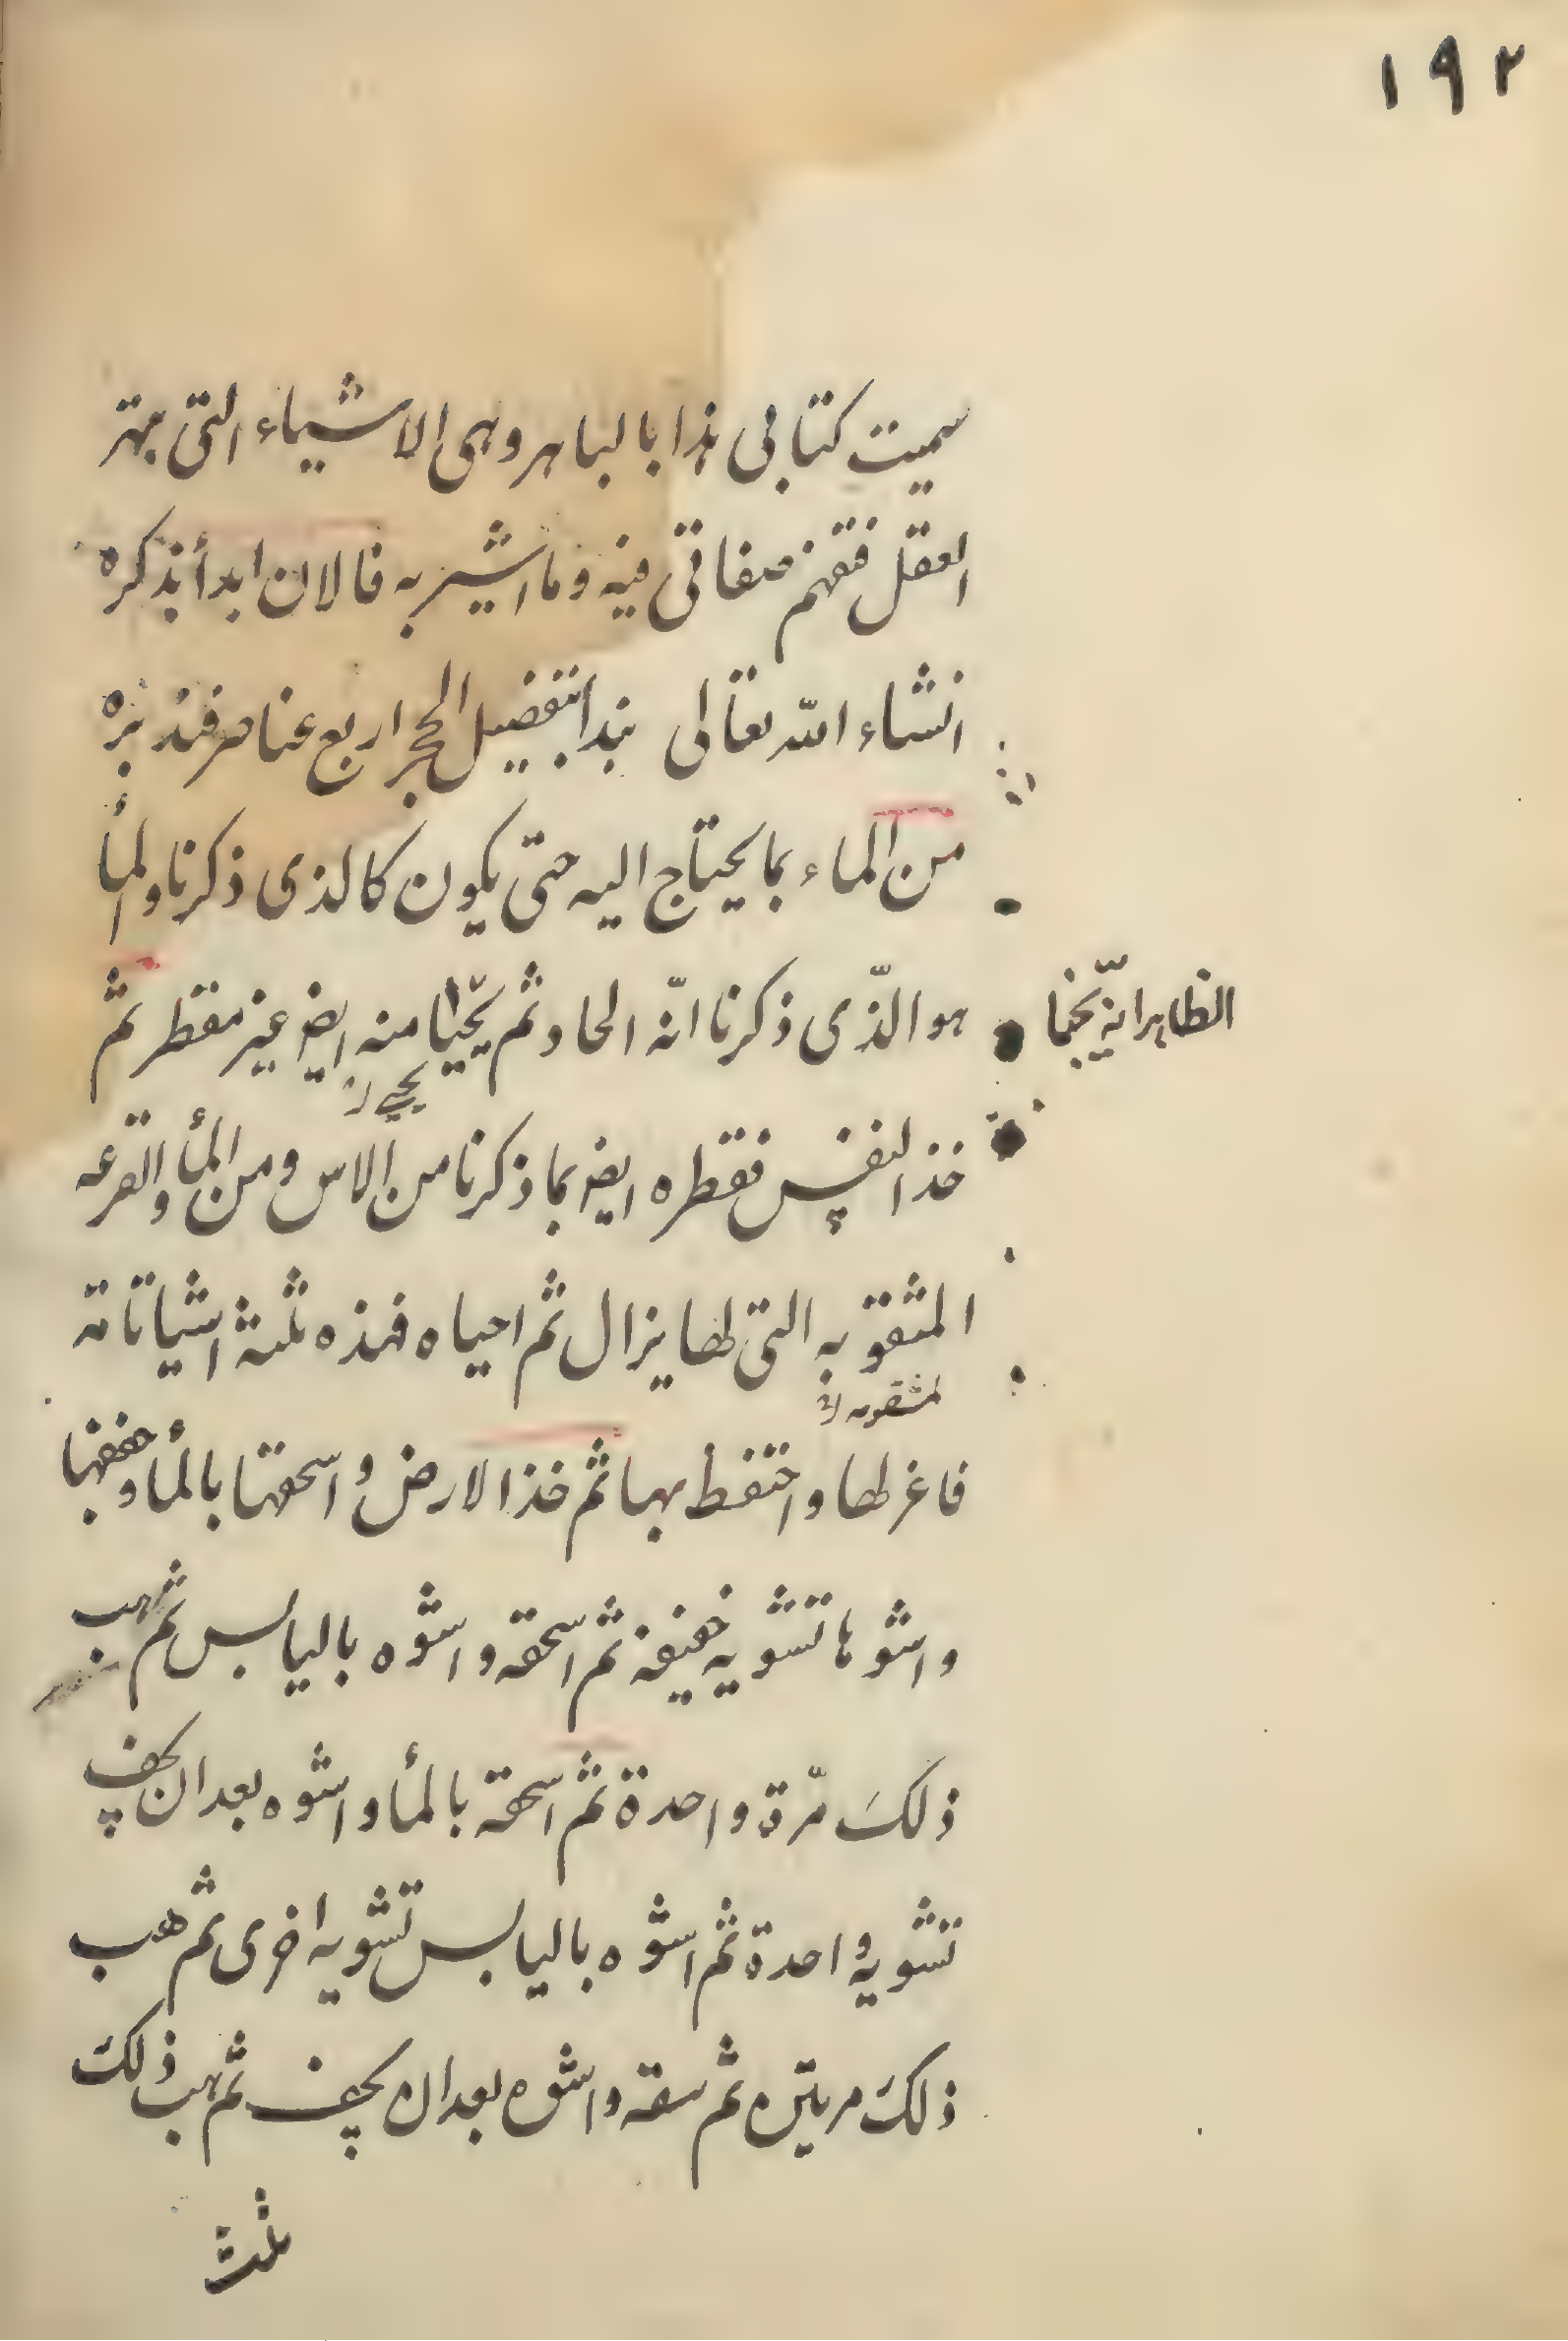 ١٩٢
سميت كتابى هذا بالباهر وهى الاشياء التى تبهر
العقل فتفهم صفاتى فيه وما اشير به فالان ابدأ بذكره
انشاء الله تعالى نبدا بتفصيل الحجر اربع عناصر فتدبره
من الماء بما يحتاج اليه حتى يكون كالذى ذكرنا والمأ
هو الّذى ذكرنا انّه الحاد ثم يحيّا منه ايض غير مقطر ثم
الظاهر انّه يخبا
خذ النفس فقطره ايض بما ذكرنا من الاس ومن المأ والقرعه
المثقوبه التى لها بزال ثم احياه فهذه ثلثة اشيا تامّة
فاعزلها واحتفظ بها ثم خذ الارض واسحقها بالمأ وجففها
واشوها تشويه خفيفة ثم اسحقه واشوه باليابس ثم هب
ذلك مرّة واحدة ثم اسحقه بالمأ واشوه بعد ان يجف
تشويه واحدة ثم اشوه باليابس تشويه اخرى ثم هب
ذلك مرتين ثم سقه واشوه بعد ان يجف ثم هب ذلك
ثلث